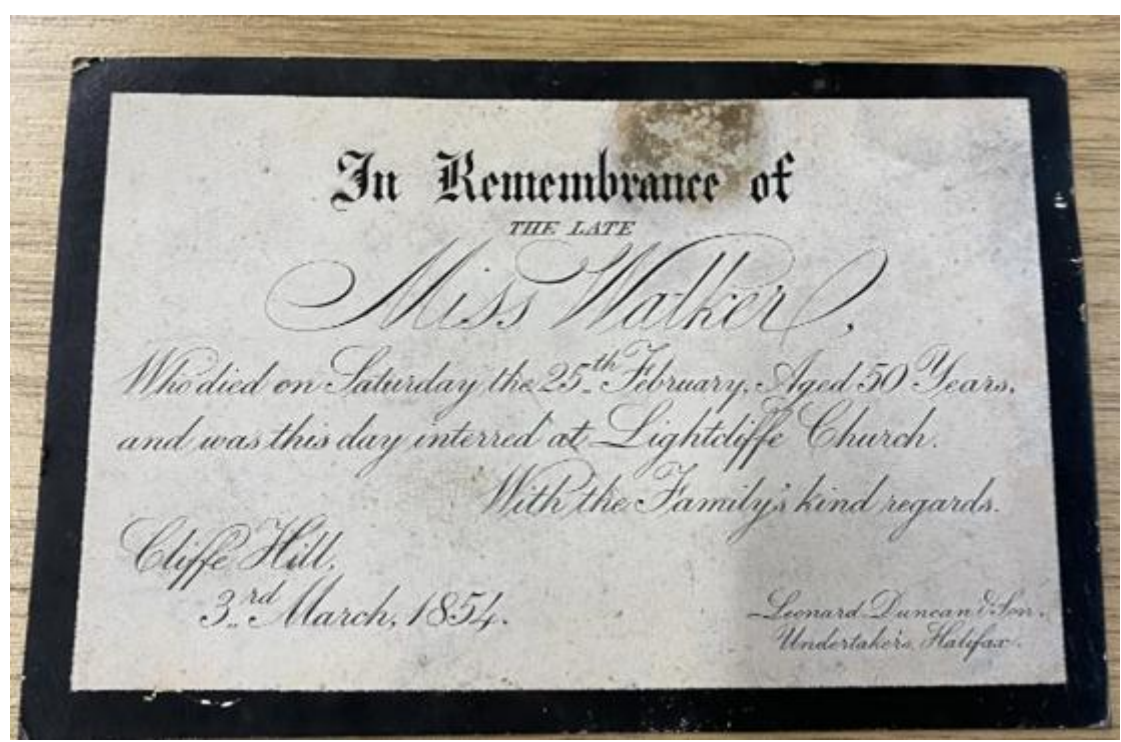 In Remembrance of
THE LATE
Miss Walker,
Who died on Saturday the 25th February, Aged 50 Years,
and was this day interred at Lightcliffe Church.
With the Family's kind regards.
Cliffe Hill,
3rd March, 1854.
Leonard Duncan & Son,
Undertakers, Halifax.